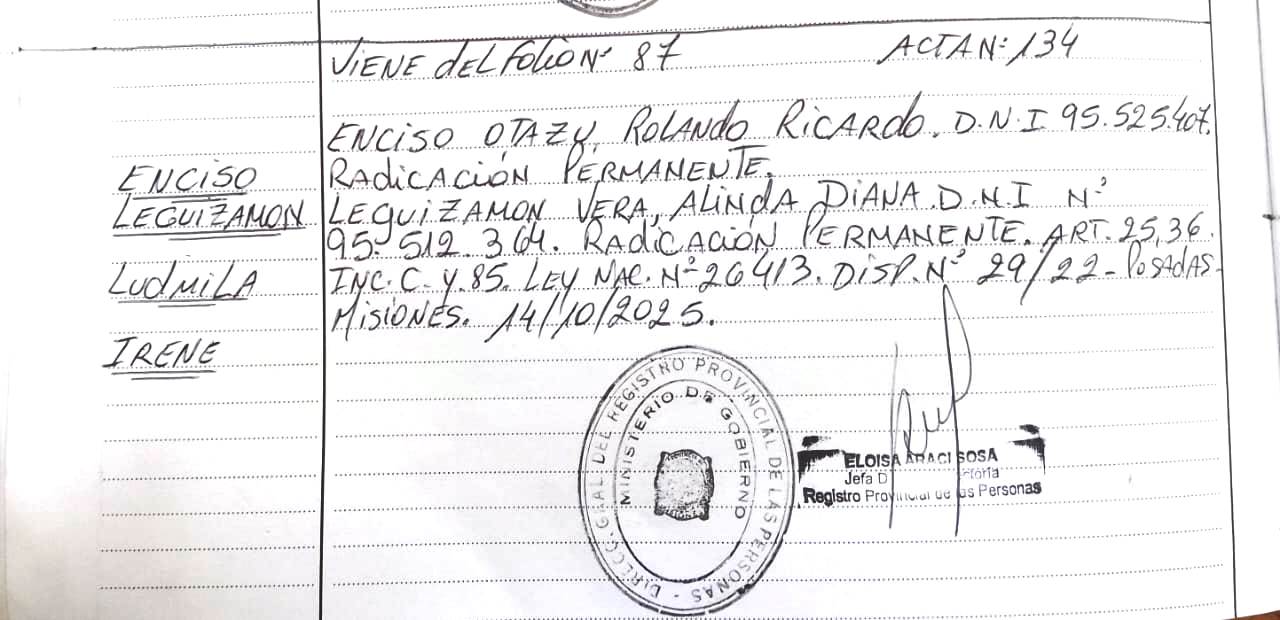 VIENE DEL FOLIO Nº 87 ACTA Nº 134
ENCISO OTAZU, ROLANDO RICARDO. D.N.I 95.525.407.
RADICACIÓN PERMANENTE.
LEGUIZAMON VERA, ALINDA DIANA. D.N.I Nº
95.512.364. RADICACIÓN PERMANENTE. ART. 25, 36.
INC. C. Y. 85. LEY NAC. Nº 26413. DISP. Nº 29/22- POSADAS-
MISIONES. 14/10/2025.
ENCISO
LEGUIZAMON
LUDMILA
IRENE
DIRECC. GRAL DEL REGISTRO PROVINCIAL DE LAS PERSONAS -
MINISTERIO DE GOBIERNO
ELOISA ARACI SOSA
Jefa D
Registro Provincial de las Personas